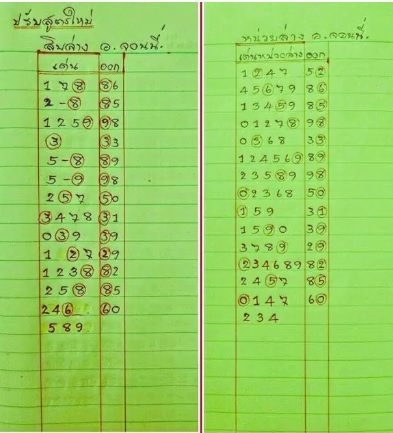 ปรับสูตรใหม่
สิบล่าง อ.จอนนี่.
เด่น ออก
1 7 8 86
2 - 8 85
1 2 5 9 98
3 33
5 - 8 89
5 - 9 98
2 5 7 50
3 4 7 8 31
0 3 9 39
1 2 7 29
1 2 3 8 82
2 5 8 85
2 4 6 60
5 8 9
หน่วยล่าง อ.จอนนี่.
เด่นหน่วยล่าง ออก
1 2 4 7 52
4 5 6 7 9 86
1 3 4 5 9 85
0 1 2 7 8 98
0 3 6 8 33
1 2 4 5 6 9 89
2 3 5 8 9 98
0 2 3 6 8 50
1 5 9 31
1 5 9 0 39
3 7 8 9 29
2 3 4 6 8 9 82
2 4 5 7 85
0 1 4 7 60
2 3 4